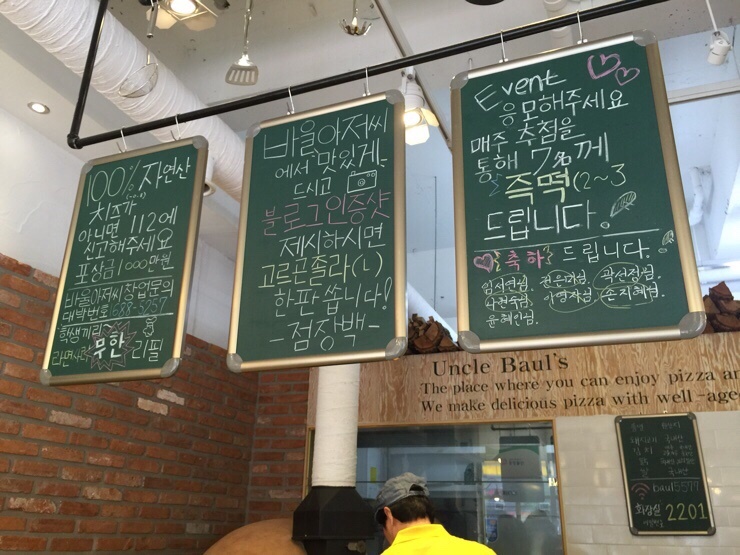 100% 자연산
치즈가
아니면 112에
신고해주세요
포상금 1000만원
바울아저씨창업문의
대박번호
학생끼리
무한 리필
바울아저씨
에서 맛있게
드시고
블로그인증샷
제시하시면
고르곤졸라(L)
한판 쏩니다!
-점장백-
Event
응모해주세요
매주 추첨을
통해 7名께
즉떡(2~3
드립니다.
축하 드립니다.
임서연님. 전은겨님. 곽선정님.
나현숙님. 안영자님. 손지혜님.
윤혜인님.
Uncle Baul's
The place where you can enjoy pizza an
We make delicious pizza with well-aged
baul5577
화장실 2201